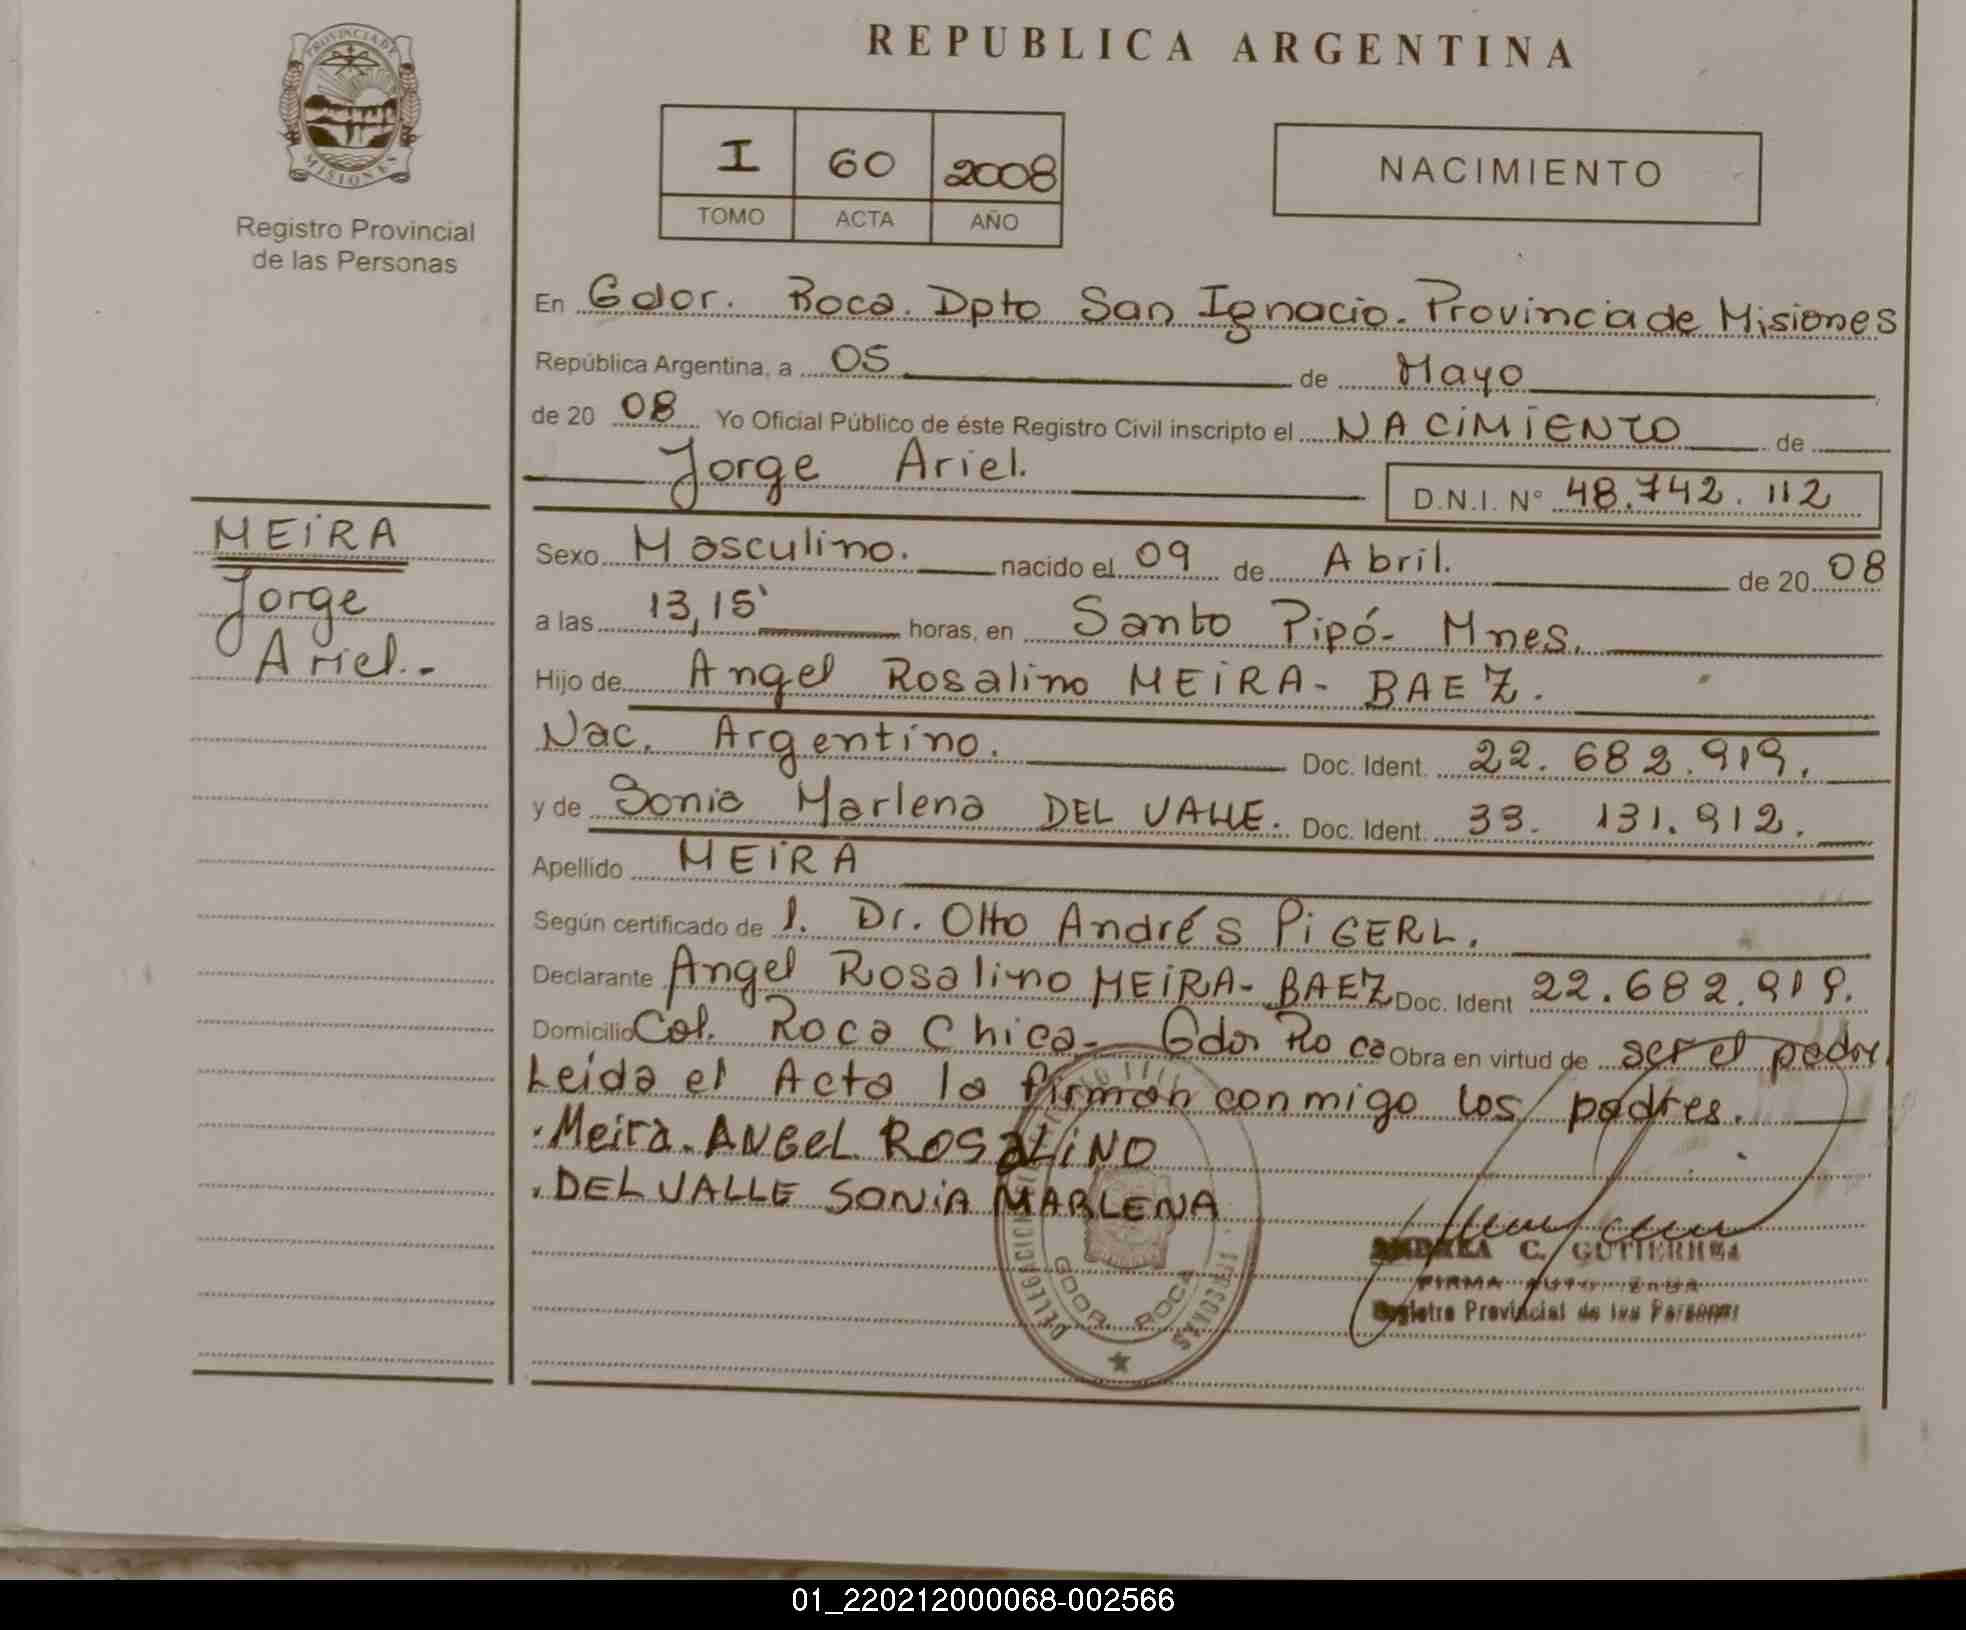 PROVINCIA DE
MISIONES
Registro Provincial
de las Personas
REPUBLICA ARGENTINA
I 60 2008
TOMO ACTA AÑO
NACIMIENTO
En Gdor. Roca. Dpto San Ignacio. Provincia de Misiones
República Argentina, a 05 de Mayo
de 20 08 Yo Oficial Público de éste Registro Civil inscripto el NACIMIENTO de
Jorge Ariel.
D.N.I. N° 48.742.112
MEIRA
Jorge
Ariel.-
Sexo Masculino. nacido el 09 de Abril. de 20 08
a las 13,15' horas, en Santo Pipó- Mnes.
Hijo de Angel Rosalino MEIRA- BAEZ.
Nac. Argentino. Doc. Ident. 22.682.919.
y de Sonia Marlena DEL VALLE. Doc. Ident. 33. 131.912.
Apellido MEIRA
Según certificado de l. Dr. Otto Andrés PIGERL.
Declarante Angel Rosalino MEIRA- BAEZ Doc. Ident 22.682.919.
Domicilio Col. Roca Chica- Gdor Roca Obra en virtud de ser el padre.
Leída el Acta la firman conmigo los padres.
.Meira. ANGEL ROSALINO
.DEL VALLE SONIA MARLENA
DELEGACION
PERSONAS
GDOR. ROCA
ANDREA C. GUTIERREZ
FIRMA AUTORIZADA
Registro Provincial de las Personas
01_220212000068-002566